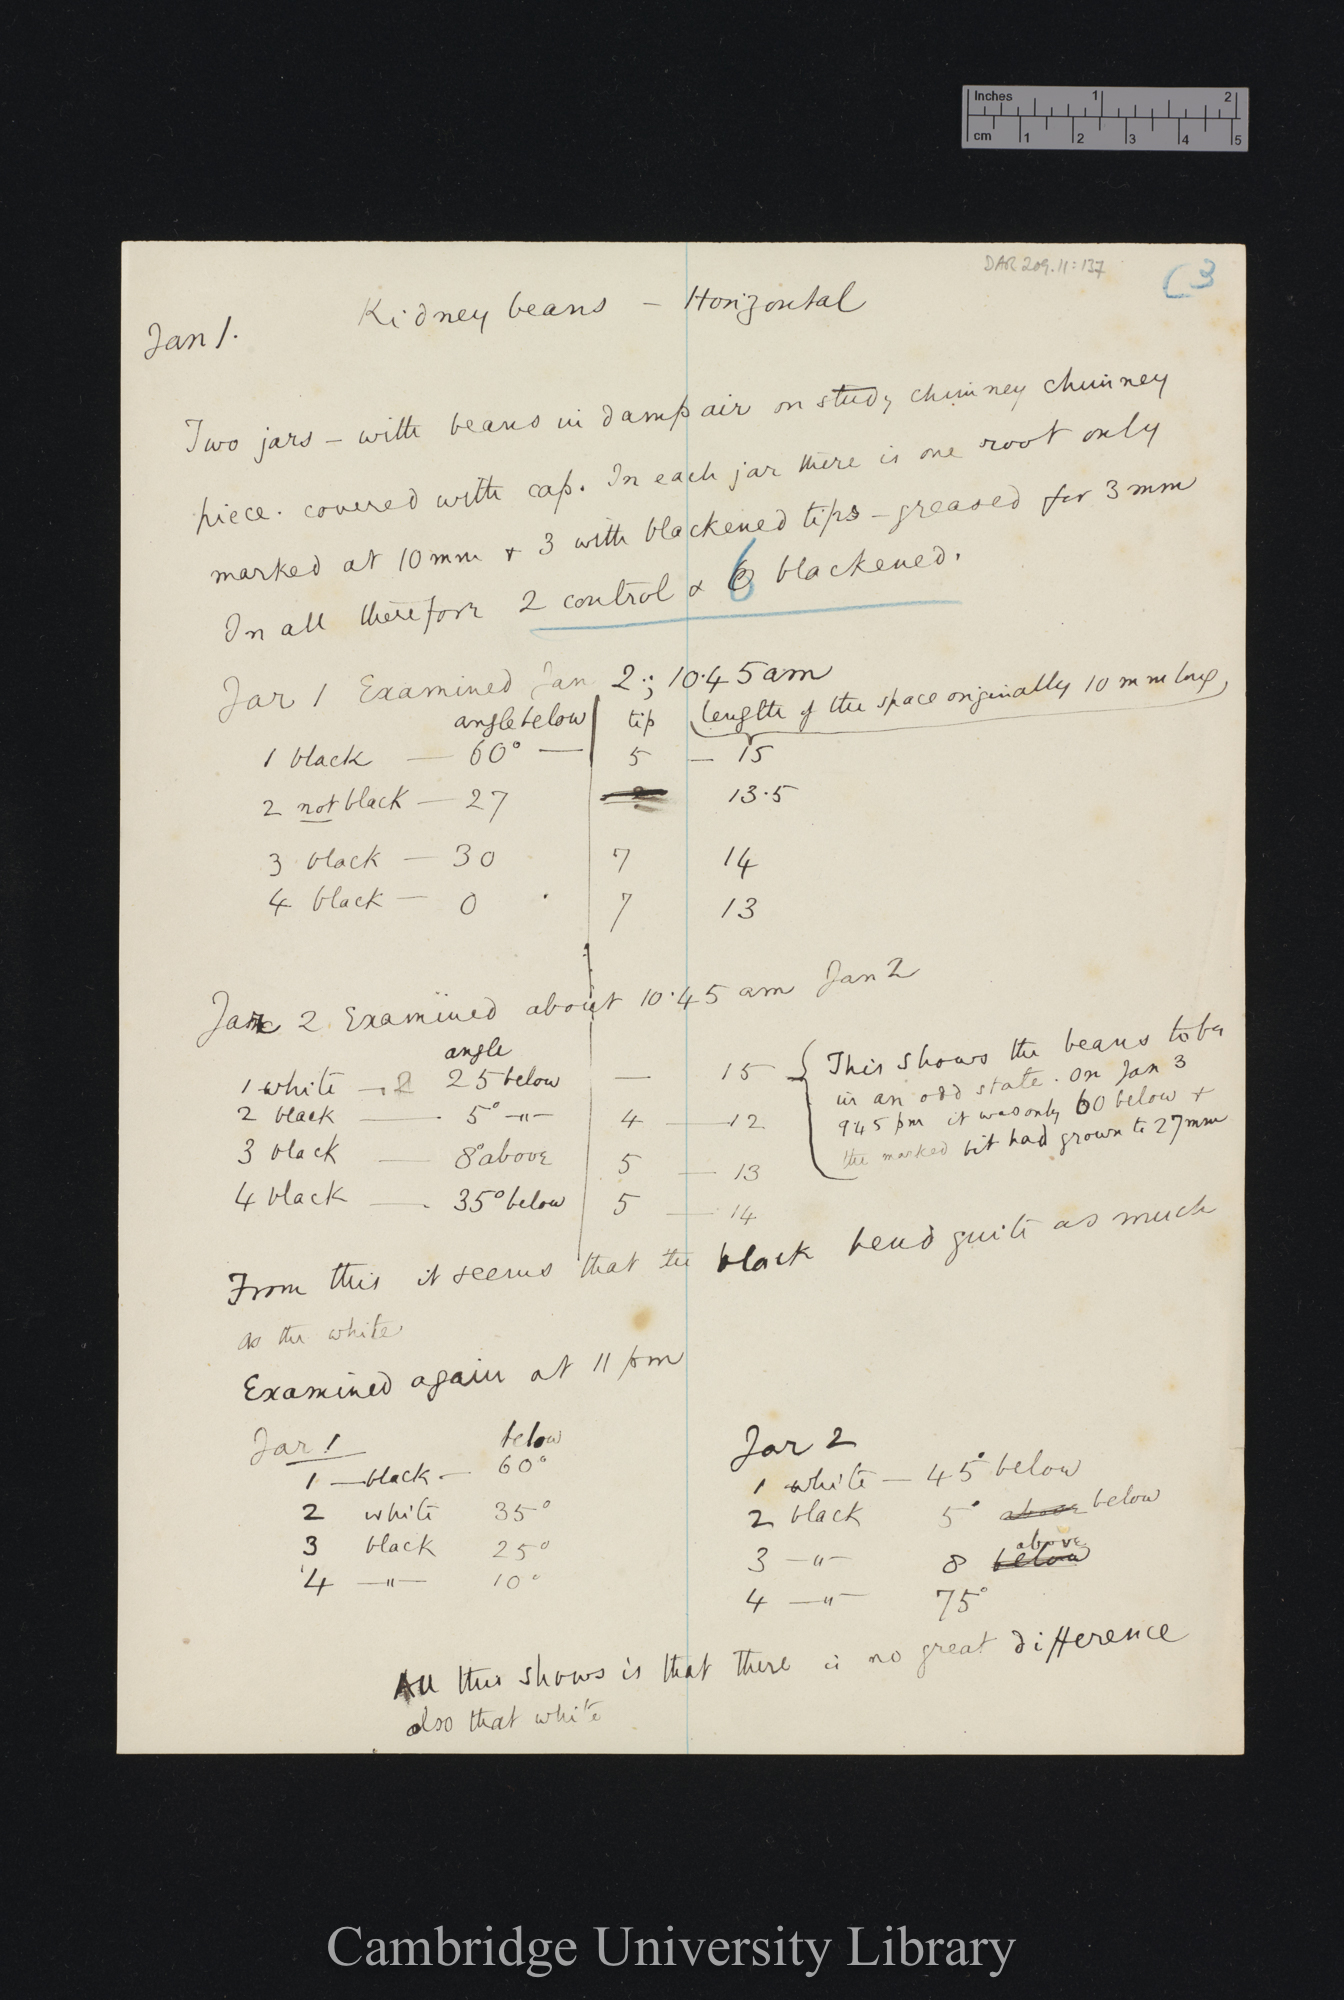 Inches 1 2
cm 1 2 3 4 5
DAR 209.11:137
(3
Kidney beans — Horizontal
Jan 1.
Two jars — with beans in damp air on study chimney chimney
piece. covered with cap. In each jar there is one root only
marked at 10 mm + 3 with blackened tips — greased for 3 mm
In all therefore 2 control & 6 blackened.
Jar 1 Examined Jan 2; 10.45 am
angle below tip length of the space originally 10 mm long
1 black — 60° — 5 — 15
2 not black — 27 13.5
3 black — 30 7 14
4 black — 0 7 13
Jar 2 Examined about 10.45 am Jan 2
angle
1 white — 25 below — 15
2 black — 5° —"— 4 — 12
3 black — 8° above 5 — 13
4 black — 35° below 5 — 14
This shows the beans to be
in an odd state. On Jan 3
945 pm it was only 60 below +
the marked bit had grown to 27 mm
From this it seems that the black bend quite as much
as the white
Examined again at 11 pm
Jar 1 below
1 — black — 60°
2 white 35°
3 black 25°
4 —"— 10°
Jar 2
1 white — 45° below
2 black 5° above below
3 —"— 8 below above
4 —"— 75°
All this shows is that there is no great difference
also that white
Cambridge University Library